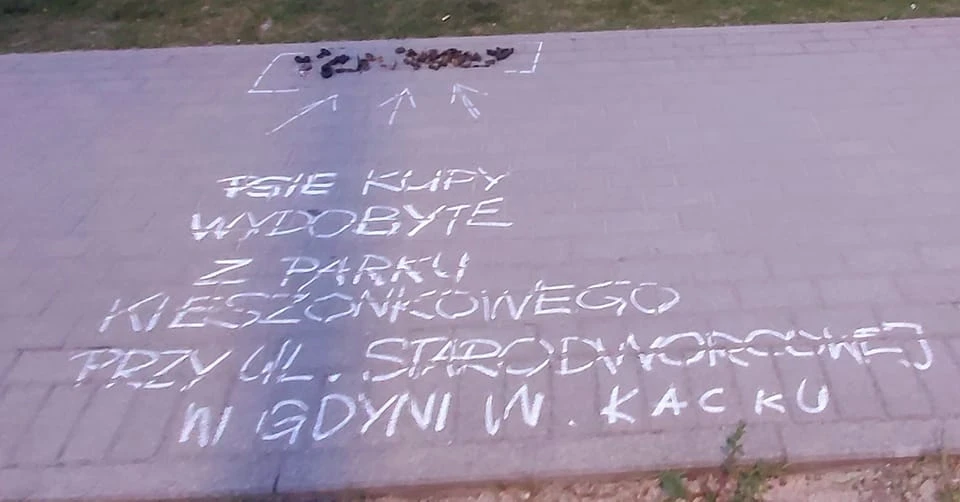 PSIE KUPY
WYDOBYTE
Z PARKU
KIESZONKOWEGO
PRZY UL. STARODWORCOWEJ
W GDYNI W. KACKU